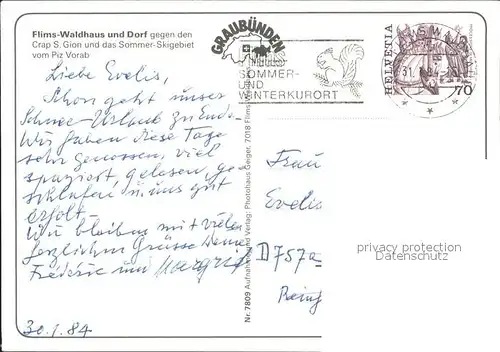 Flims-Waldhaus und Dorf gegen den
Crap S. Gion und das Sommer-Skigebiet
vom Piz Vorab
Liebe Evelis,
Schon geht unser
Schnee-Urlaub zu Ende.
Wir haben diese Tage
sehr genossen, viel
spaziert, gelesen, ge-
schlafen u. uns gut
erholt.
Wir bleiben mit vielen
herzlichen Grüsse Deine
Frédéric und Margrit
30.1.84
Nr. 7809 Aufnahme und Verlag: Photohaus Geiger, 7018 Flims
GRAUBÜNDEN
FLIMS
SOMMER-
UND
WINTERKURORT
31.1.84
HELVETIA
70
Frau
Evelis
D 757
privacy protection
Datenschutz